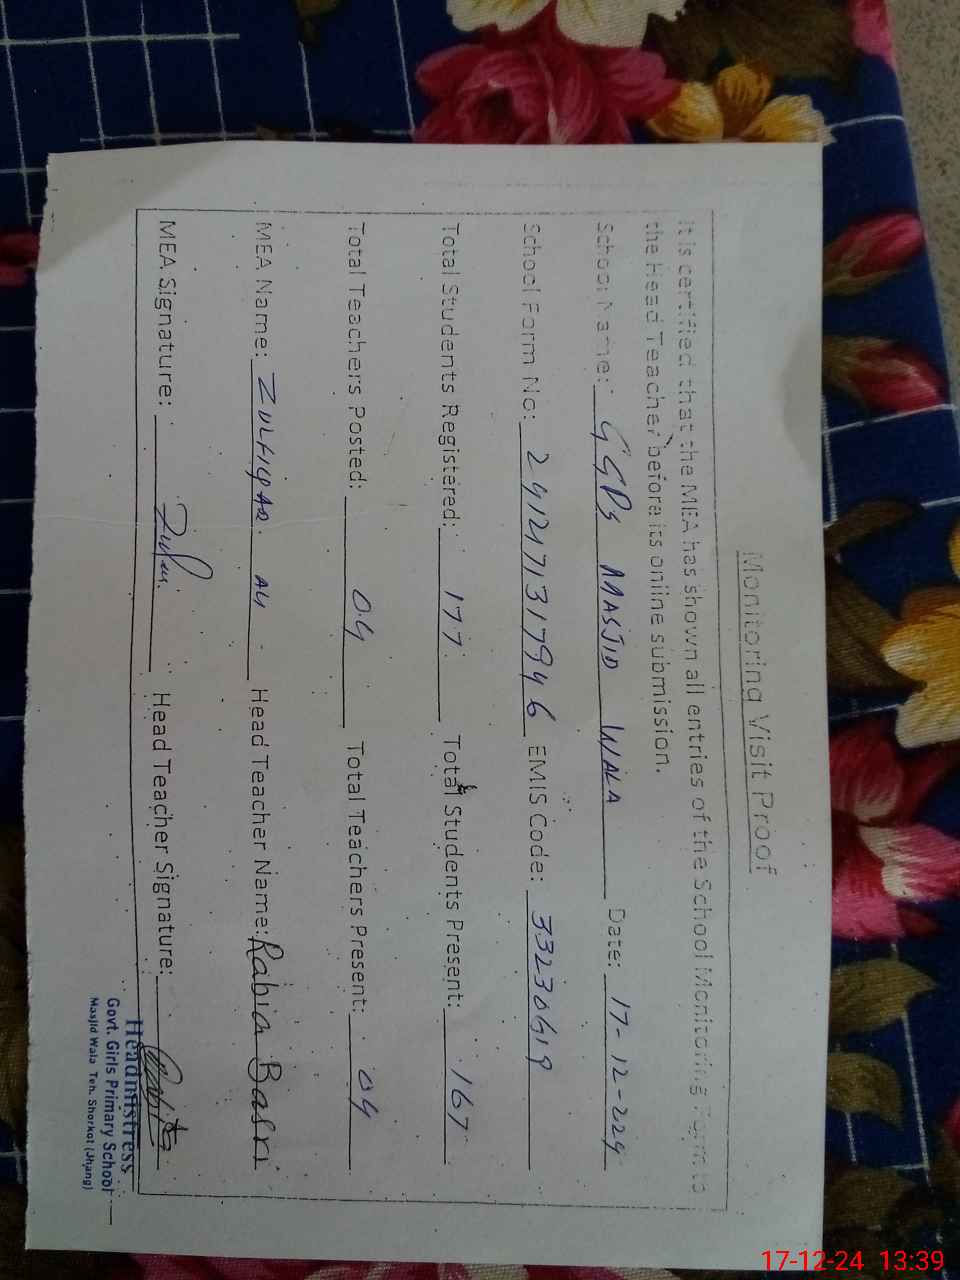 Monitoring Visit Proof
It is certified that the MEA has shown all entries of the School Monitoring Form to
the Head Teacher before its online submission.
School Name: GGPS MASJID WALA Date: 17-12-224
School Form No: 2412171317946 EMIS Code: 33230619
Total Students Registered: 177 Total Students Present: 167
Total Teachers Posted: 04 Total Teachers Present: 04
MEA Name: ZULFIQAR ALI Head Teacher Name: Rabia Basri
MEA Signature: Head Teacher Signature:
Headmistress
Govt. Girls Primary School
Masjid Wala Teh. Shorkot (Jhang)
17-12-24 13:39